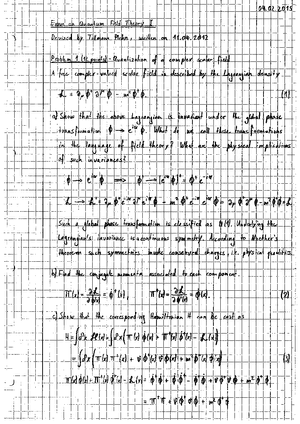 09.02.2015
Exam in Quantum Field Theory I
Devised by Tilman Plehn, written on 11.02.2012
Problem 1 (12 points) - Quantization of a complex scalar field
A free complex-valued scalar field is described by the Lagrangian density
ℒ = ∂μ ϕ* ∂^μ ϕ − m² ϕ* ϕ. (1)
a) Show that the above Lagrangian is invariant under the global phase
transformation ϕ → e^{iα} ϕ. What do we call these transformations
in the language of field theory? What are the physical implications
of such invariances?
ϕ → e^{iα} ϕ ⟹ ϕ* → (e^{iα} ϕ)* = ϕ* e^{-iα}
Such a global phase transformation is classified as U(1). Underlying the
Lagrangian's invariance is a continuous symmetry. According to Noether's
theorem such symmetries invoke conserved charges, i.e. physical quantities.
b) Find the conjugate momenta associated to each component.
π(x) = ∂ℒ/∂ϕ̇(x) = ϕ̇*(x), π*(x) = ∂ℒ/∂ϕ̇*(x) = ϕ̇(x). (2)
c) Show that the corresponding Hamiltonian H can be cast as
H = ∫d³x ℋ(x) = ∫d³x (π(x) ϕ̇(x) + π*(x) ϕ̇*(x) − ℒ(x))
= ∫d³x (π(x) π*(x) + ∇ϕ*(x) ∇ϕ(x) + m² ϕ*(x) ϕ(x)) (3)
= π* π + ∇ϕ* ∇ϕ + m² ϕ* ϕ